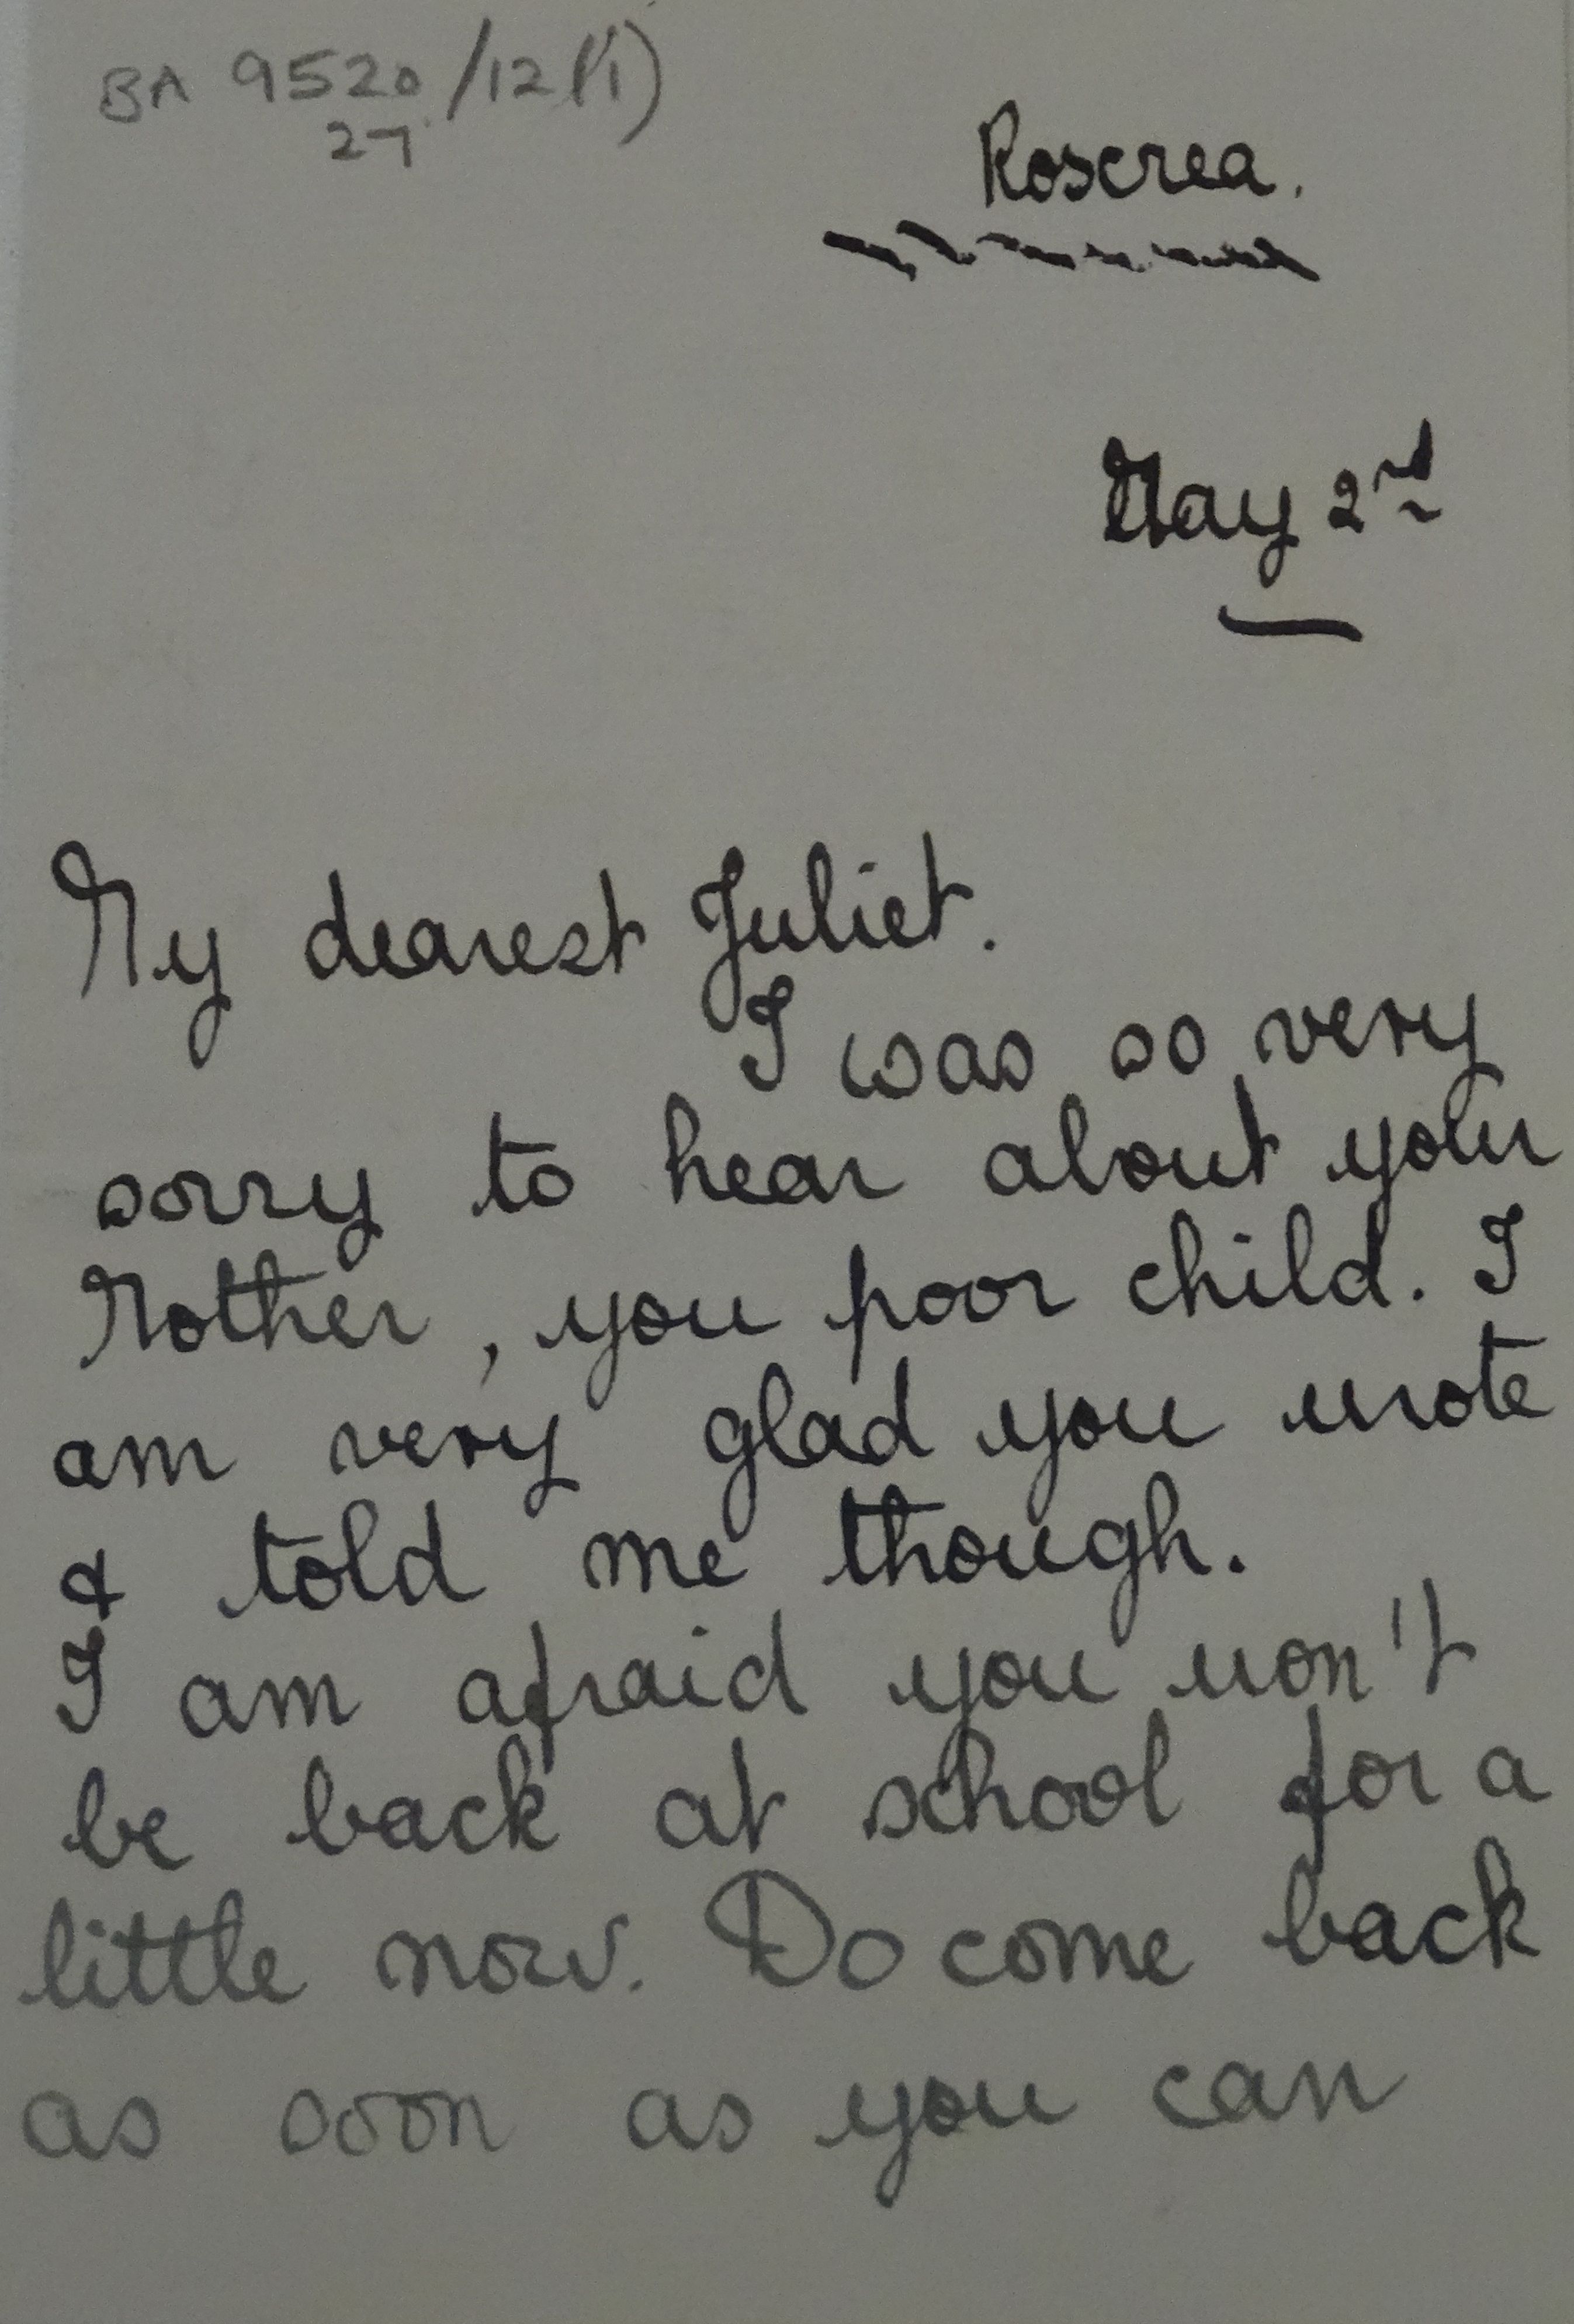 BA 9520/12(i)
27
Roscrea.
May 2nd
My dearest Juliet.
I was so very
sorry to hear about your
Mother, you poor child. I
am very glad you wrote
& told me though.
I am afraid you won't
be back at school for a
little now. Do come back
as soon as you can